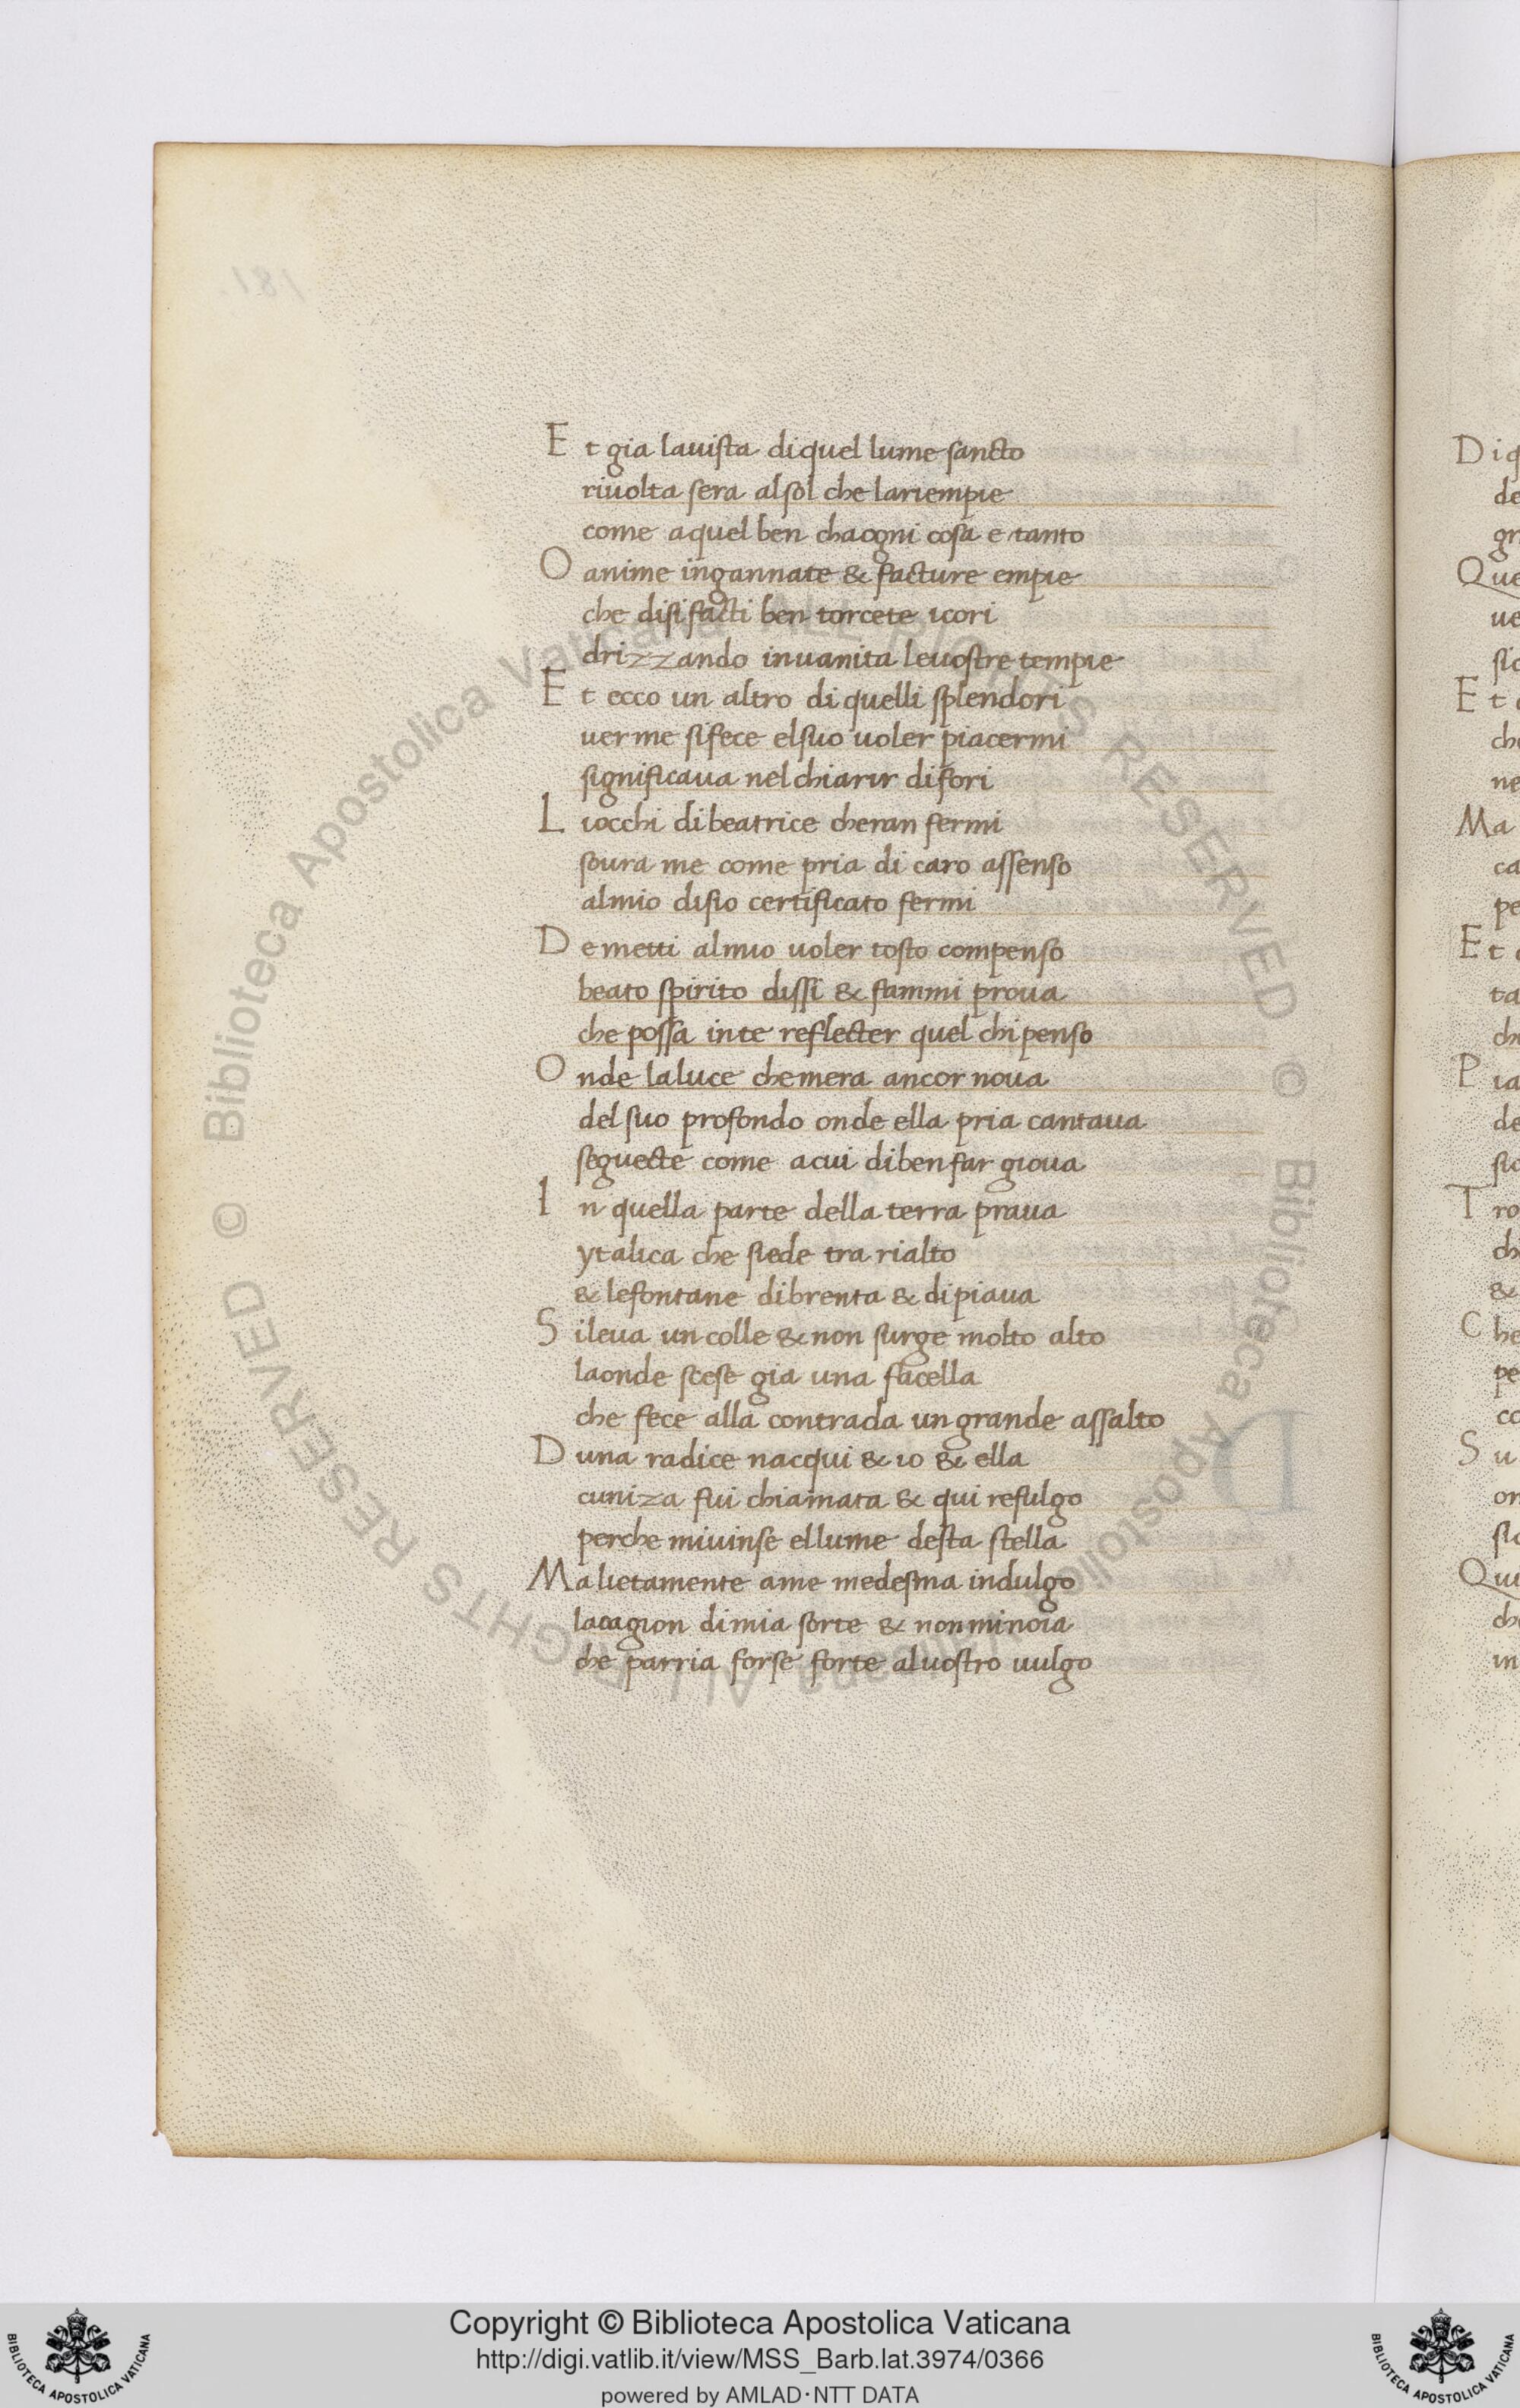 Et gia lauista diquel lume sancto
riuolta sera alsol che lariempie
come aquel ben chaogni cosa e tanto
O anime ingannate & facture empie
che disifacti ben torcete icori
drizzando inuanita leuostre tempie
Et ecco un altro di quelli splendori
uer me sifece elsuo uoler piacermi
significaua nel chiarir difori
L iocchi dibeatrice cheran fermi
soura me come pria di caro assenso
almio disio certificato fermi
D e metti almio uoler tosto compenso
beato spirito dissi & fammi proua
che possa inte reflecter quel chipenso
O nde laluce chemera ancor noua
del suo profondo onde ella pria cantaua
seguecte come acui diben far gioua
I n quella parte della terra praua
ytalica che siede tra rialto
& lefontane dibrenta & dipiaua
S ileua un colle & non surge molto alto
laonde scese gia una facella
che fece alla contrada un grande assalto
D una radice nacqui & io & ella
cuniza fui chiamata & qui refulgo
perche miuinse ellume desta stella
Ma lietamente ame medesma indulgo
lacagion dimia sorte & nonminoia
che parria forse forte aluostro uulgo
Copyright © Biblioteca Apostolica Vaticana
http://digi.vatlib.it/view/MSS_Barb.lat.3974/0366
powered by AMLAD·NTT DATA